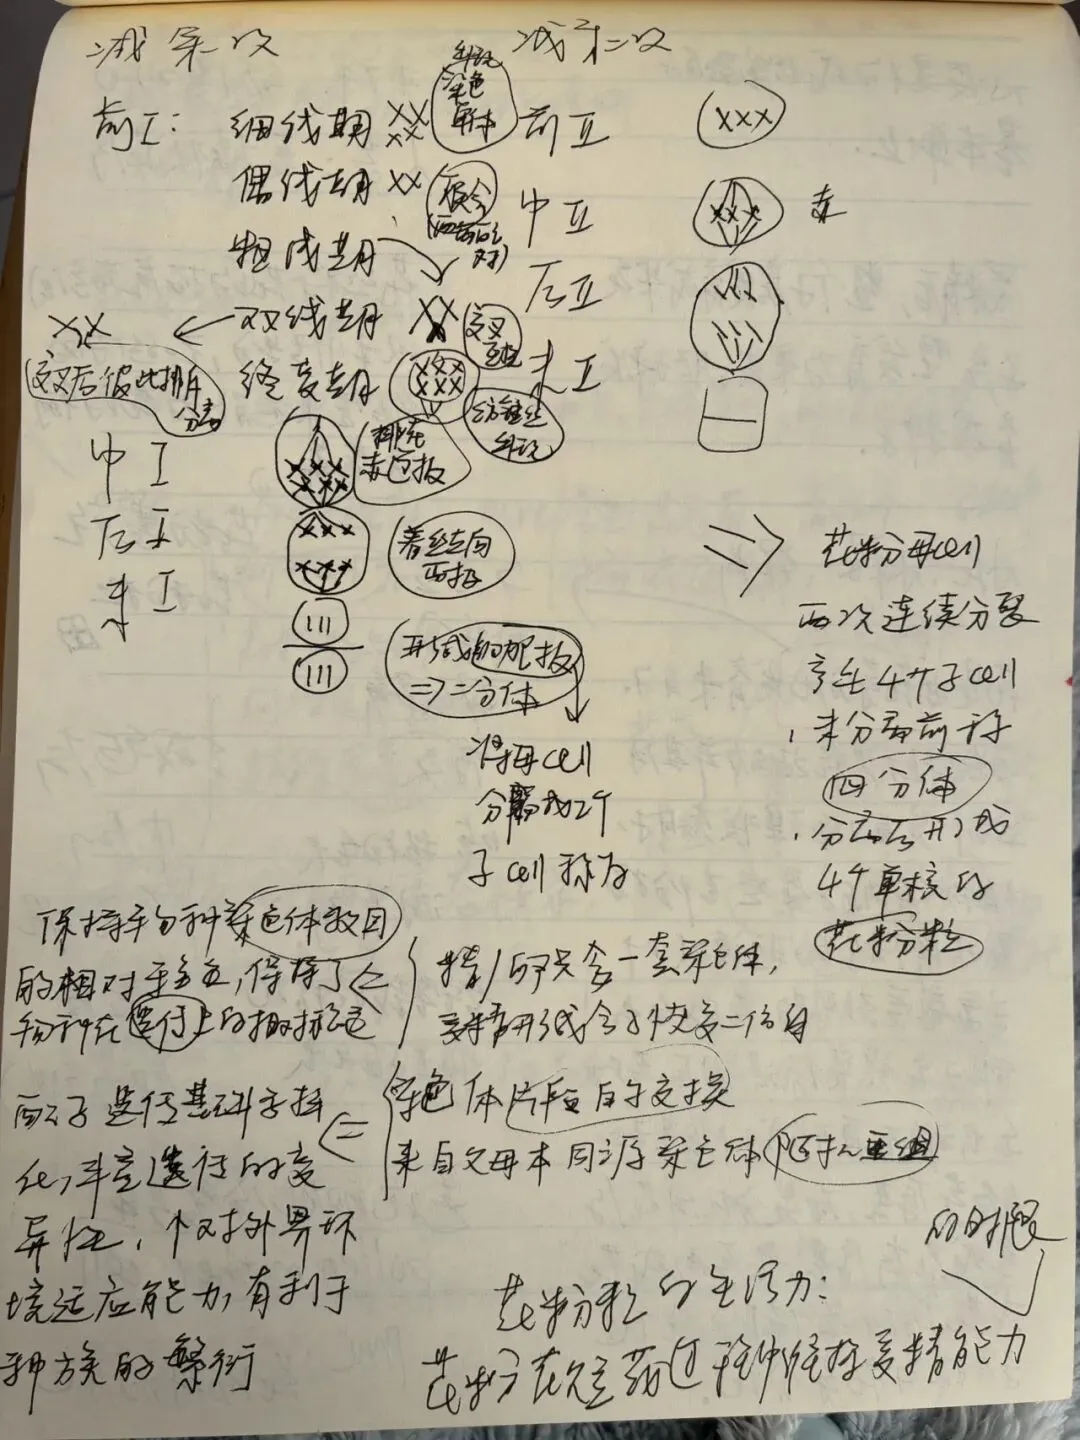 减第一次
减第二次
前I:
细线期
出现
染色
单体
偶线期
联会
粗线期
双线期
交叉
终变期
纺锤丝
出现
交叉后彼此排斥
分离
中I
排在
赤道板
后I
着丝点向
两极
末I
形成细胞板
⇒二分体
将母cell
分离成2个
子cell称为
前II
中II
赤
后II
末II
⇒ 花粉母cell
两次连续分裂
产生4个子cell
未分离前称
四分体
分离后形成
4个单核的
花粉粒
精/卵只含一套染色体,
受精形成合子恢复二倍体
保持物种染色体数目
的相对稳定,保障了
物种在遗传上的相对稳定
染色体片段的交换
来自父母本同源染色体随机重组
遗传基础多样
化,丰富遗传的变
异性,个对外界环
境适应能力,有利于
种族的繁衍
花粉粒的生活力:
花粉在完药过程中维持受精能力
的时限